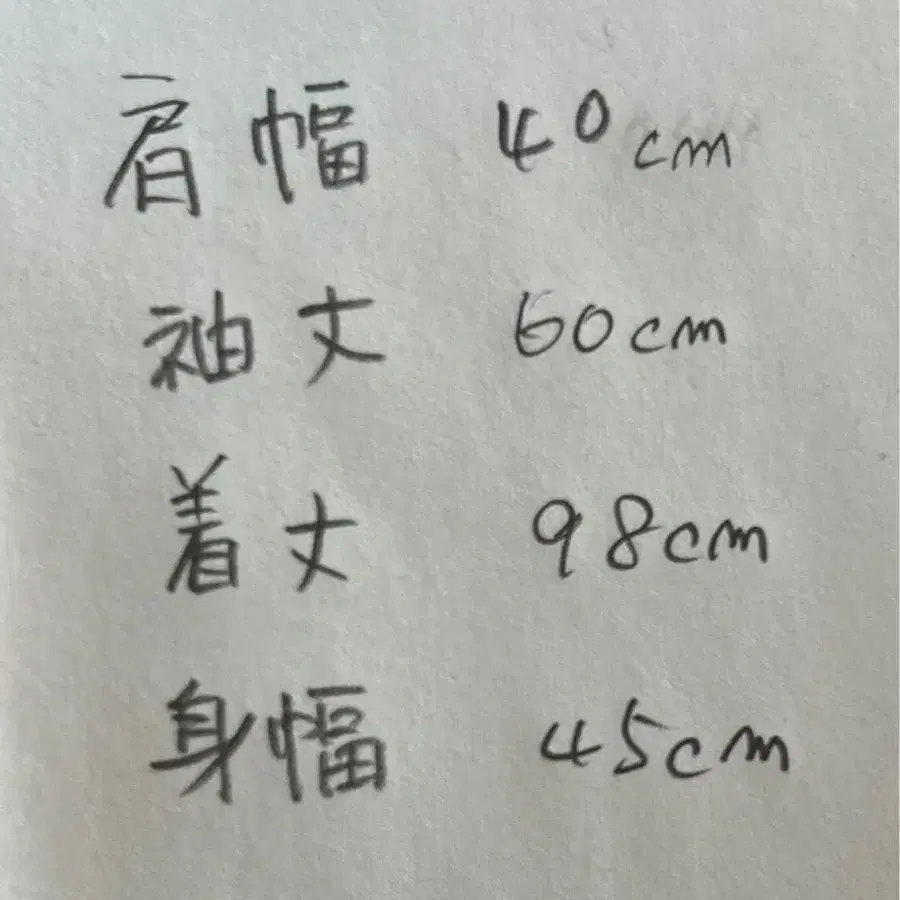 肩幅 40cm
袖丈 60cm
着丈 98cm
身幅 45cm